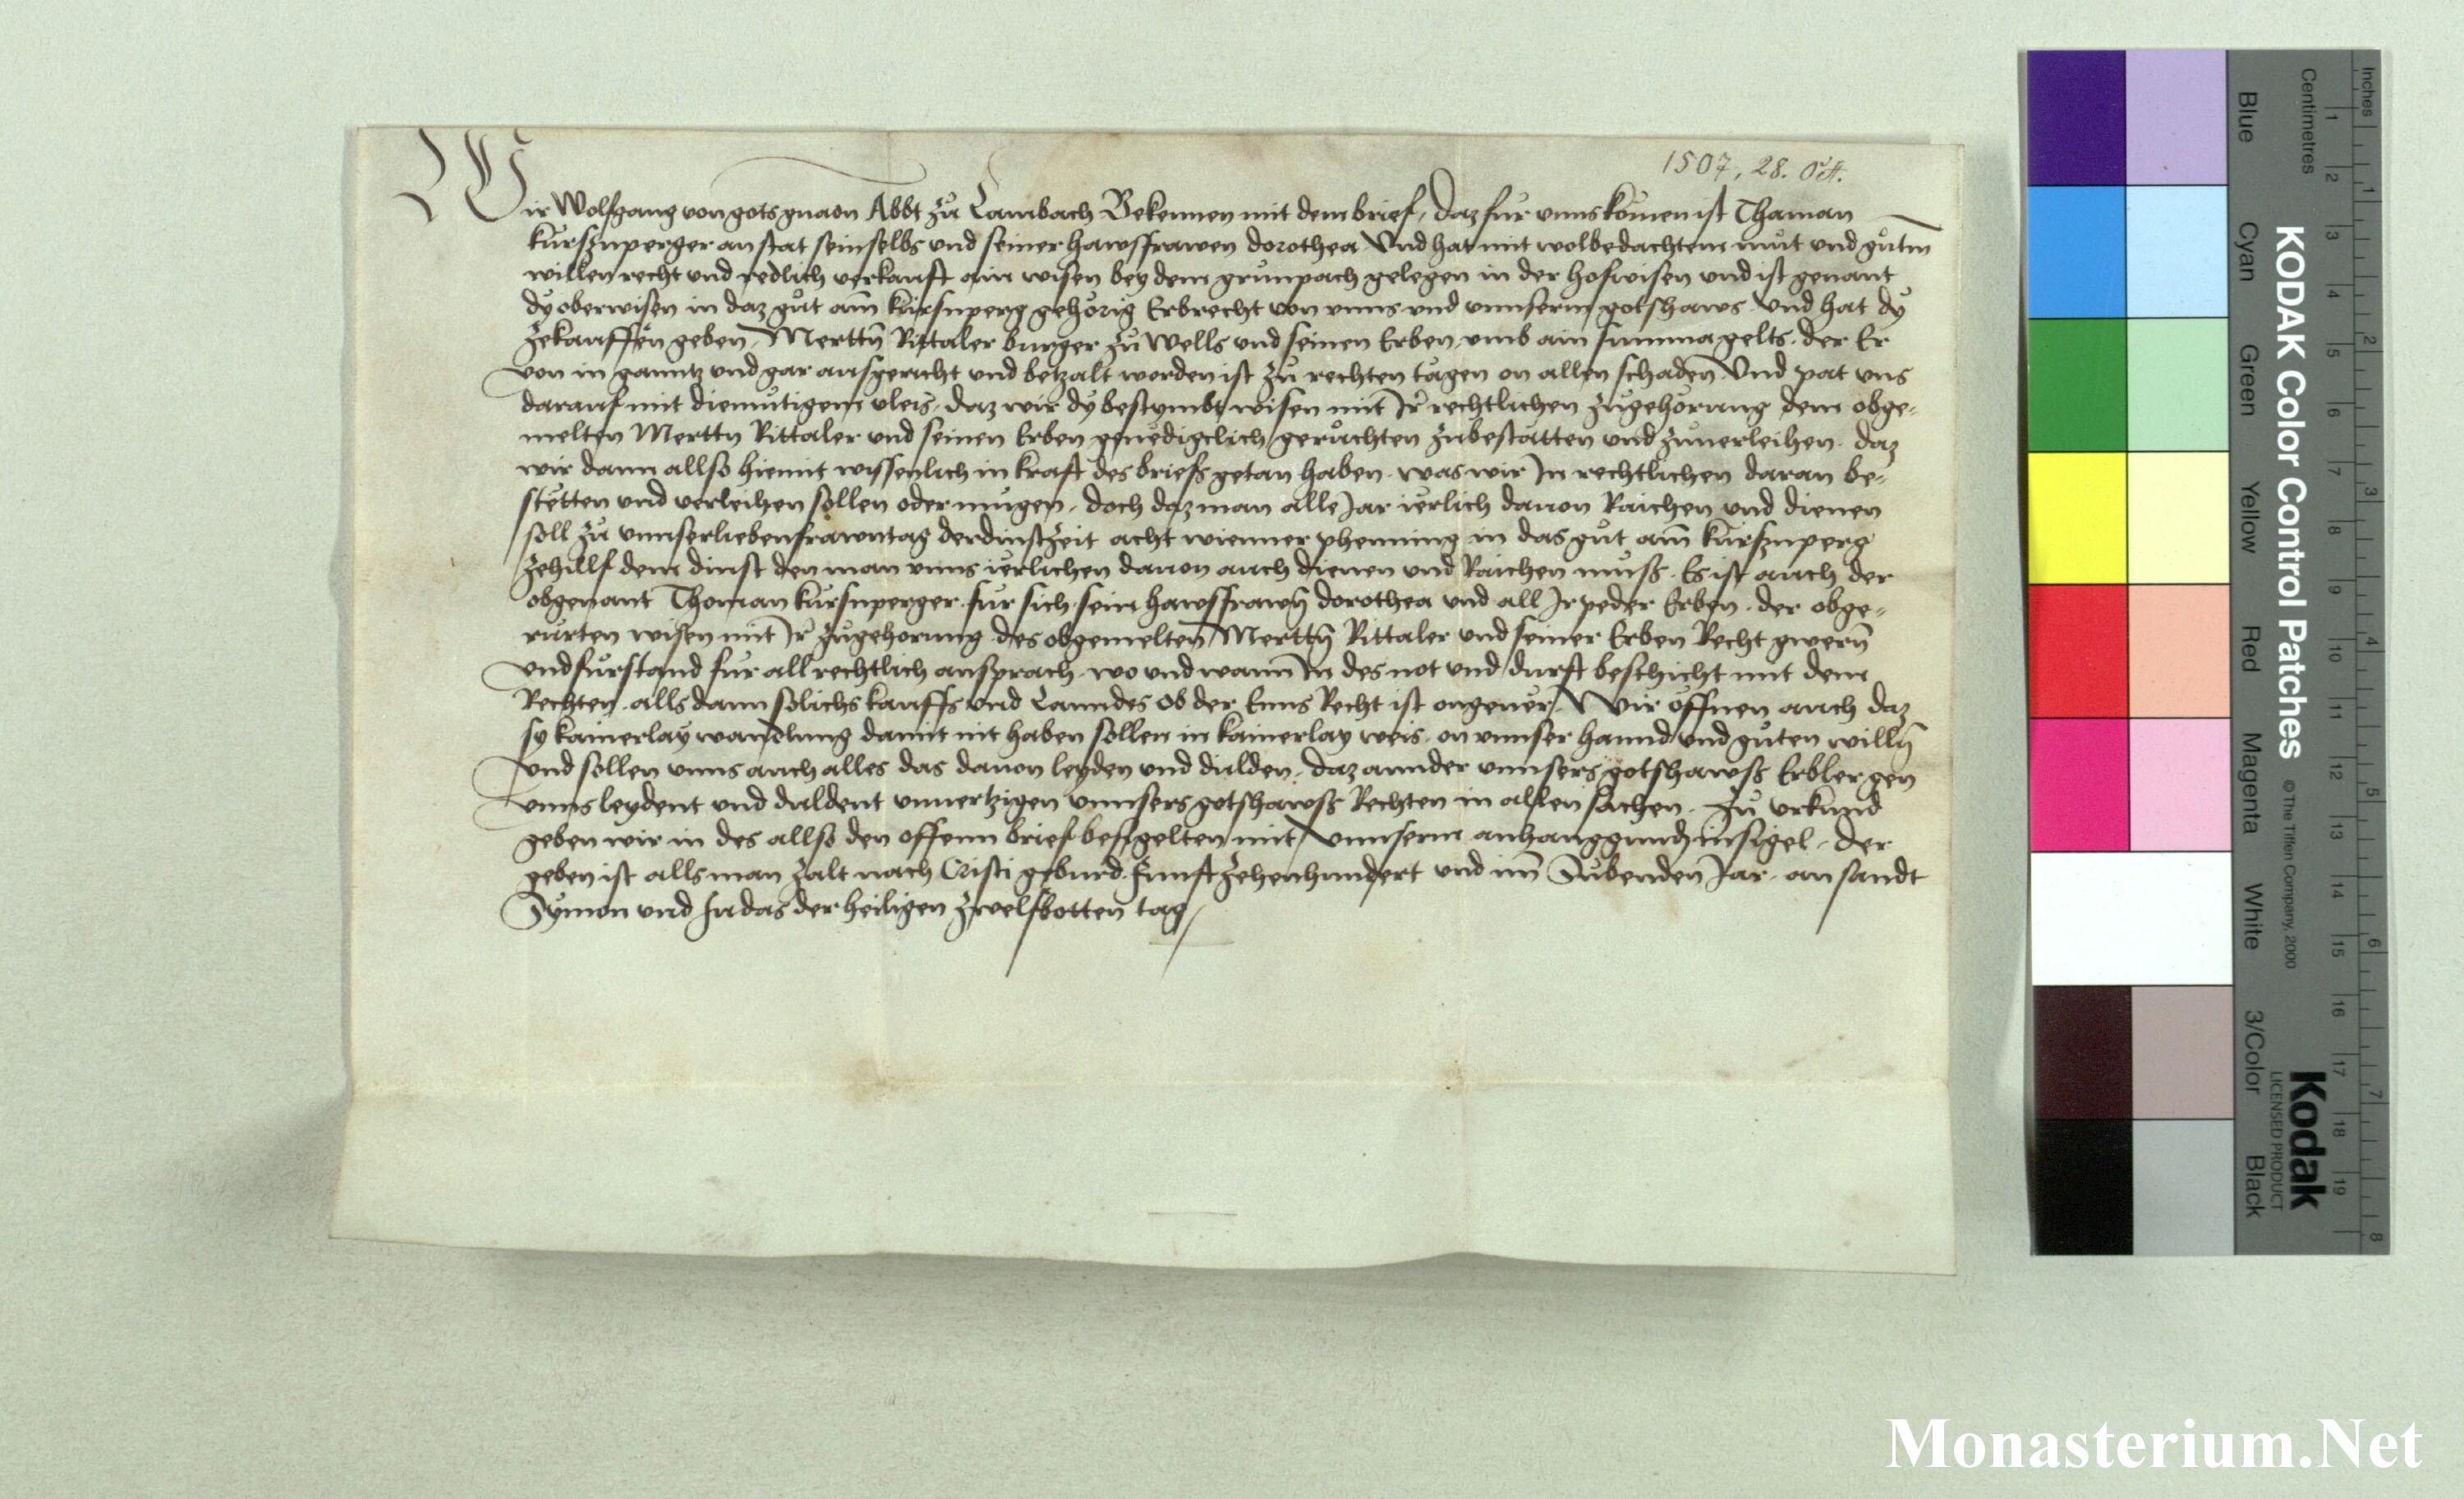 1507, 28. Oct.
Wir Wolfgang von gots gnadn Abbt zů Lambach Bekennen mit dem brief, daz fur unns komen ist Thaman
kürsznperger anstat sein selbs und seiner hawsfrawen dorothea Und hat mit wolbedachtem můt und gůtm
willen recht und redlich verkauft ain wisen bey dem grunpach gelegen in der hofwisen und ist genant
dy oberwisen in daz gůt am̄ kürsnperg gehörig Erbrecht von unns und unnserm gotshaws Und hat dy
zekauffen geben Merttn̄ Rittaler burger zů Wells und seinen Erben umb ain summa gelts der Er
von in ganntz und gar ausgericht und betzalt worden ist zů rechten tägen on allen schaden Und pat uns
darauf mit diemutigem vleis, daz wir dy bestymbt wisen mit Ir rechtlichen zůgehorung dem obge-
melten Merttn Rittaler und seinen Erben genedigclich gerůchten zubestätten und zuuerleihen daz
wir dann allso hiemit wissenlich in kraft des briefs getan haben was wir In rechtlichen daran be-
stetten und verleihen sollen oder mugen, doch daz man alle Jar ierlich dauon Raichen und dienen
soll zů unnser lieben frawntag der dinstzeit acht wienner phenning in das gůt am̄ kürsznperg
zehillf dem dinst den man unns ierlichen dauon auch dienen und Raichen muss Es ist auch der
obgenant Thoman kürsnperger fur sich sein hawsfrawn̄ dorothea und all Ir peder Erben der obge-
rurten wisen mit Ir zůgehorung des obgemelten Merttn̄ Rittaler und seiner Erben Recht gwern̄
und fürstand fur all rechtlich ansprach wo und wann In des not und durft beschicht mit dem
Rechten alls dann solichs kauffs und Lanndes ob der Enns Recht ist ongeuer, Wir öffnen auch daz
sy kainerlay wandlung damit nit haben sollen in kainerlay weis on unnser hannd und gůten willn̄
und sollen unns auch alles das dauon leyden und dulden, daz annder unnsers gotshawss Erbler gen
unns leydent und duldent unuertzigen unnsers gotshawss Rechten in allen sachen Zů urkund
geben wir in des allso den offenn brief besigelten mit unnserm anhanggundn insigel, der
geben ist alls man zalt nach Cristi geburd funfftzehenhundert und im̄ Subenden Jar an sandt
Symon und Judas der heiligen zwelfbotten tag
KODAK Color Control Patches
© The Tiffen Company, 2000
Kodak
LICENSED PRODUCT
Inches
Centimetres
1 2 3 4 5 6 7 8
1 2 3 4 5 6 7 8 9 10 11 12 13 14 15 16 17 18 19
Blue
Cyan
Green
Yellow
Red
Magenta
White
3/Color
Black
Monasterium.Net